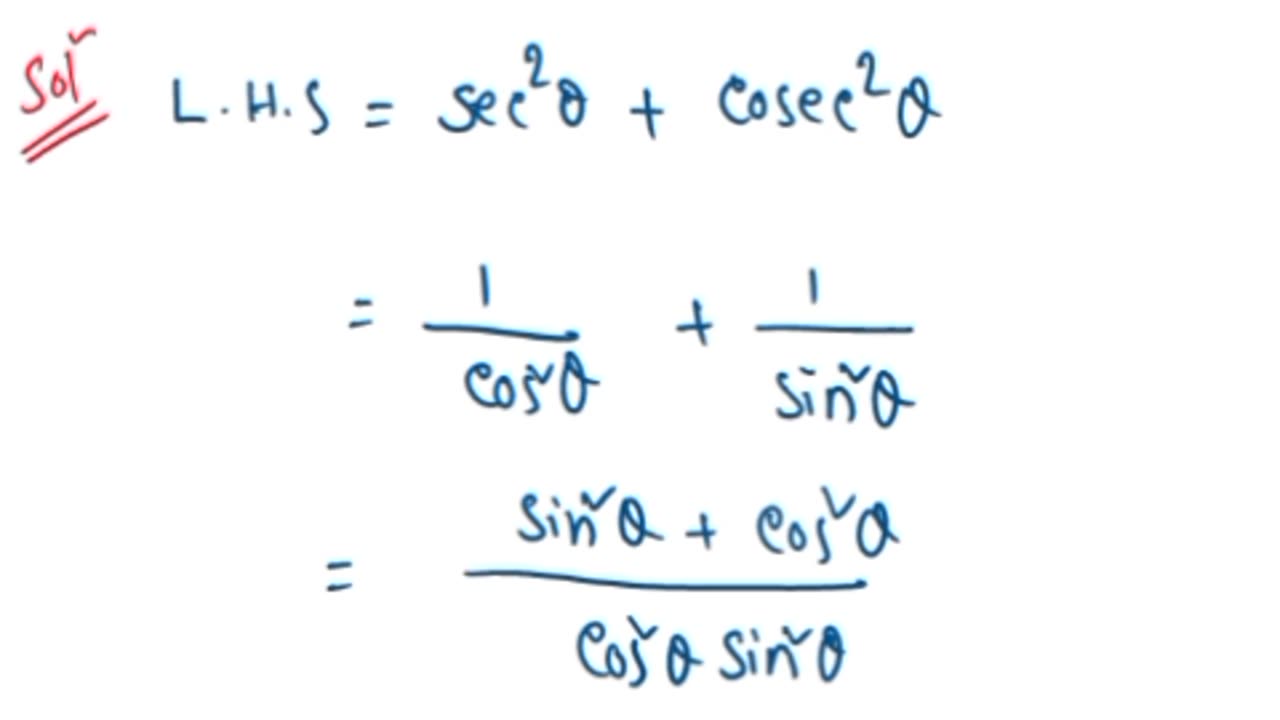 Sol
L.H.S = sec²θ + cosec²θ
= 1/cos²θ + 1/sin²θ
= (sin²θ + cos²θ)/(cos²θ sin²θ)